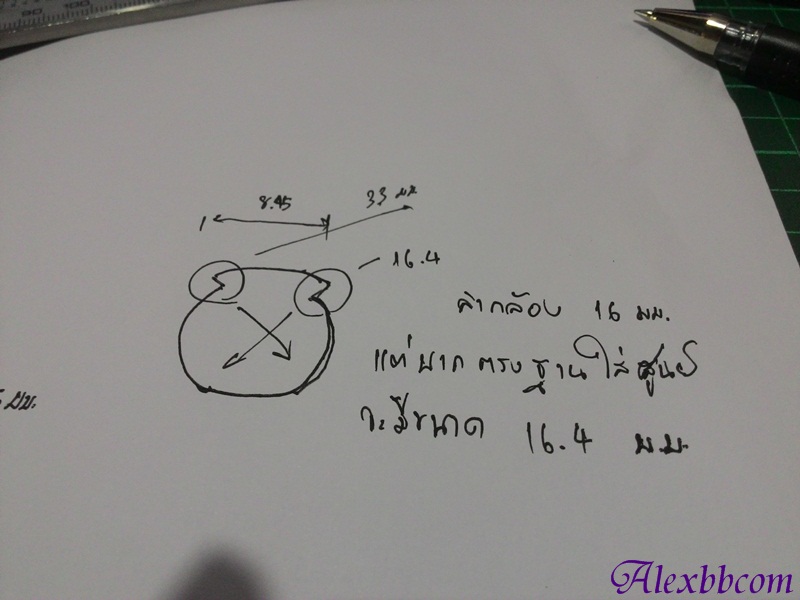 90 100
8.45
33 มม
16.4
ลำกล้อง 16 มม.
แต่ บาก ตรง ฐาน ใส่ ศูนย์
จะมีขนาด 16.4 ม.ม.
มม.
Alexbbcom